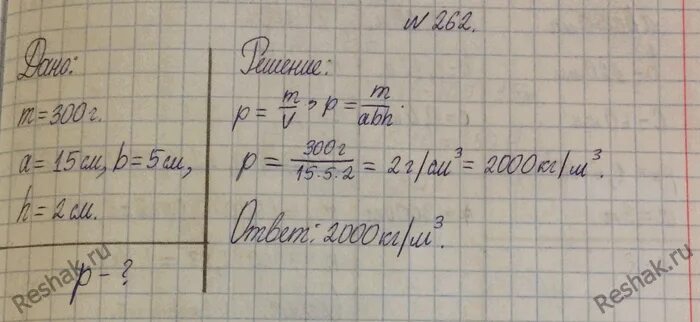 № 262.
Дано:
m = 300 г.
a = 15 см, b = 5 см,
h = 2 см.
p - ?
Решение:
p = m/V ; p = m/abh.
p = 300 г/15·5·2 = 2 г/см³ = 2000 кг/м³.
Ответ: 2000 кг/м³.
Reshak.ru
Reshak.ru